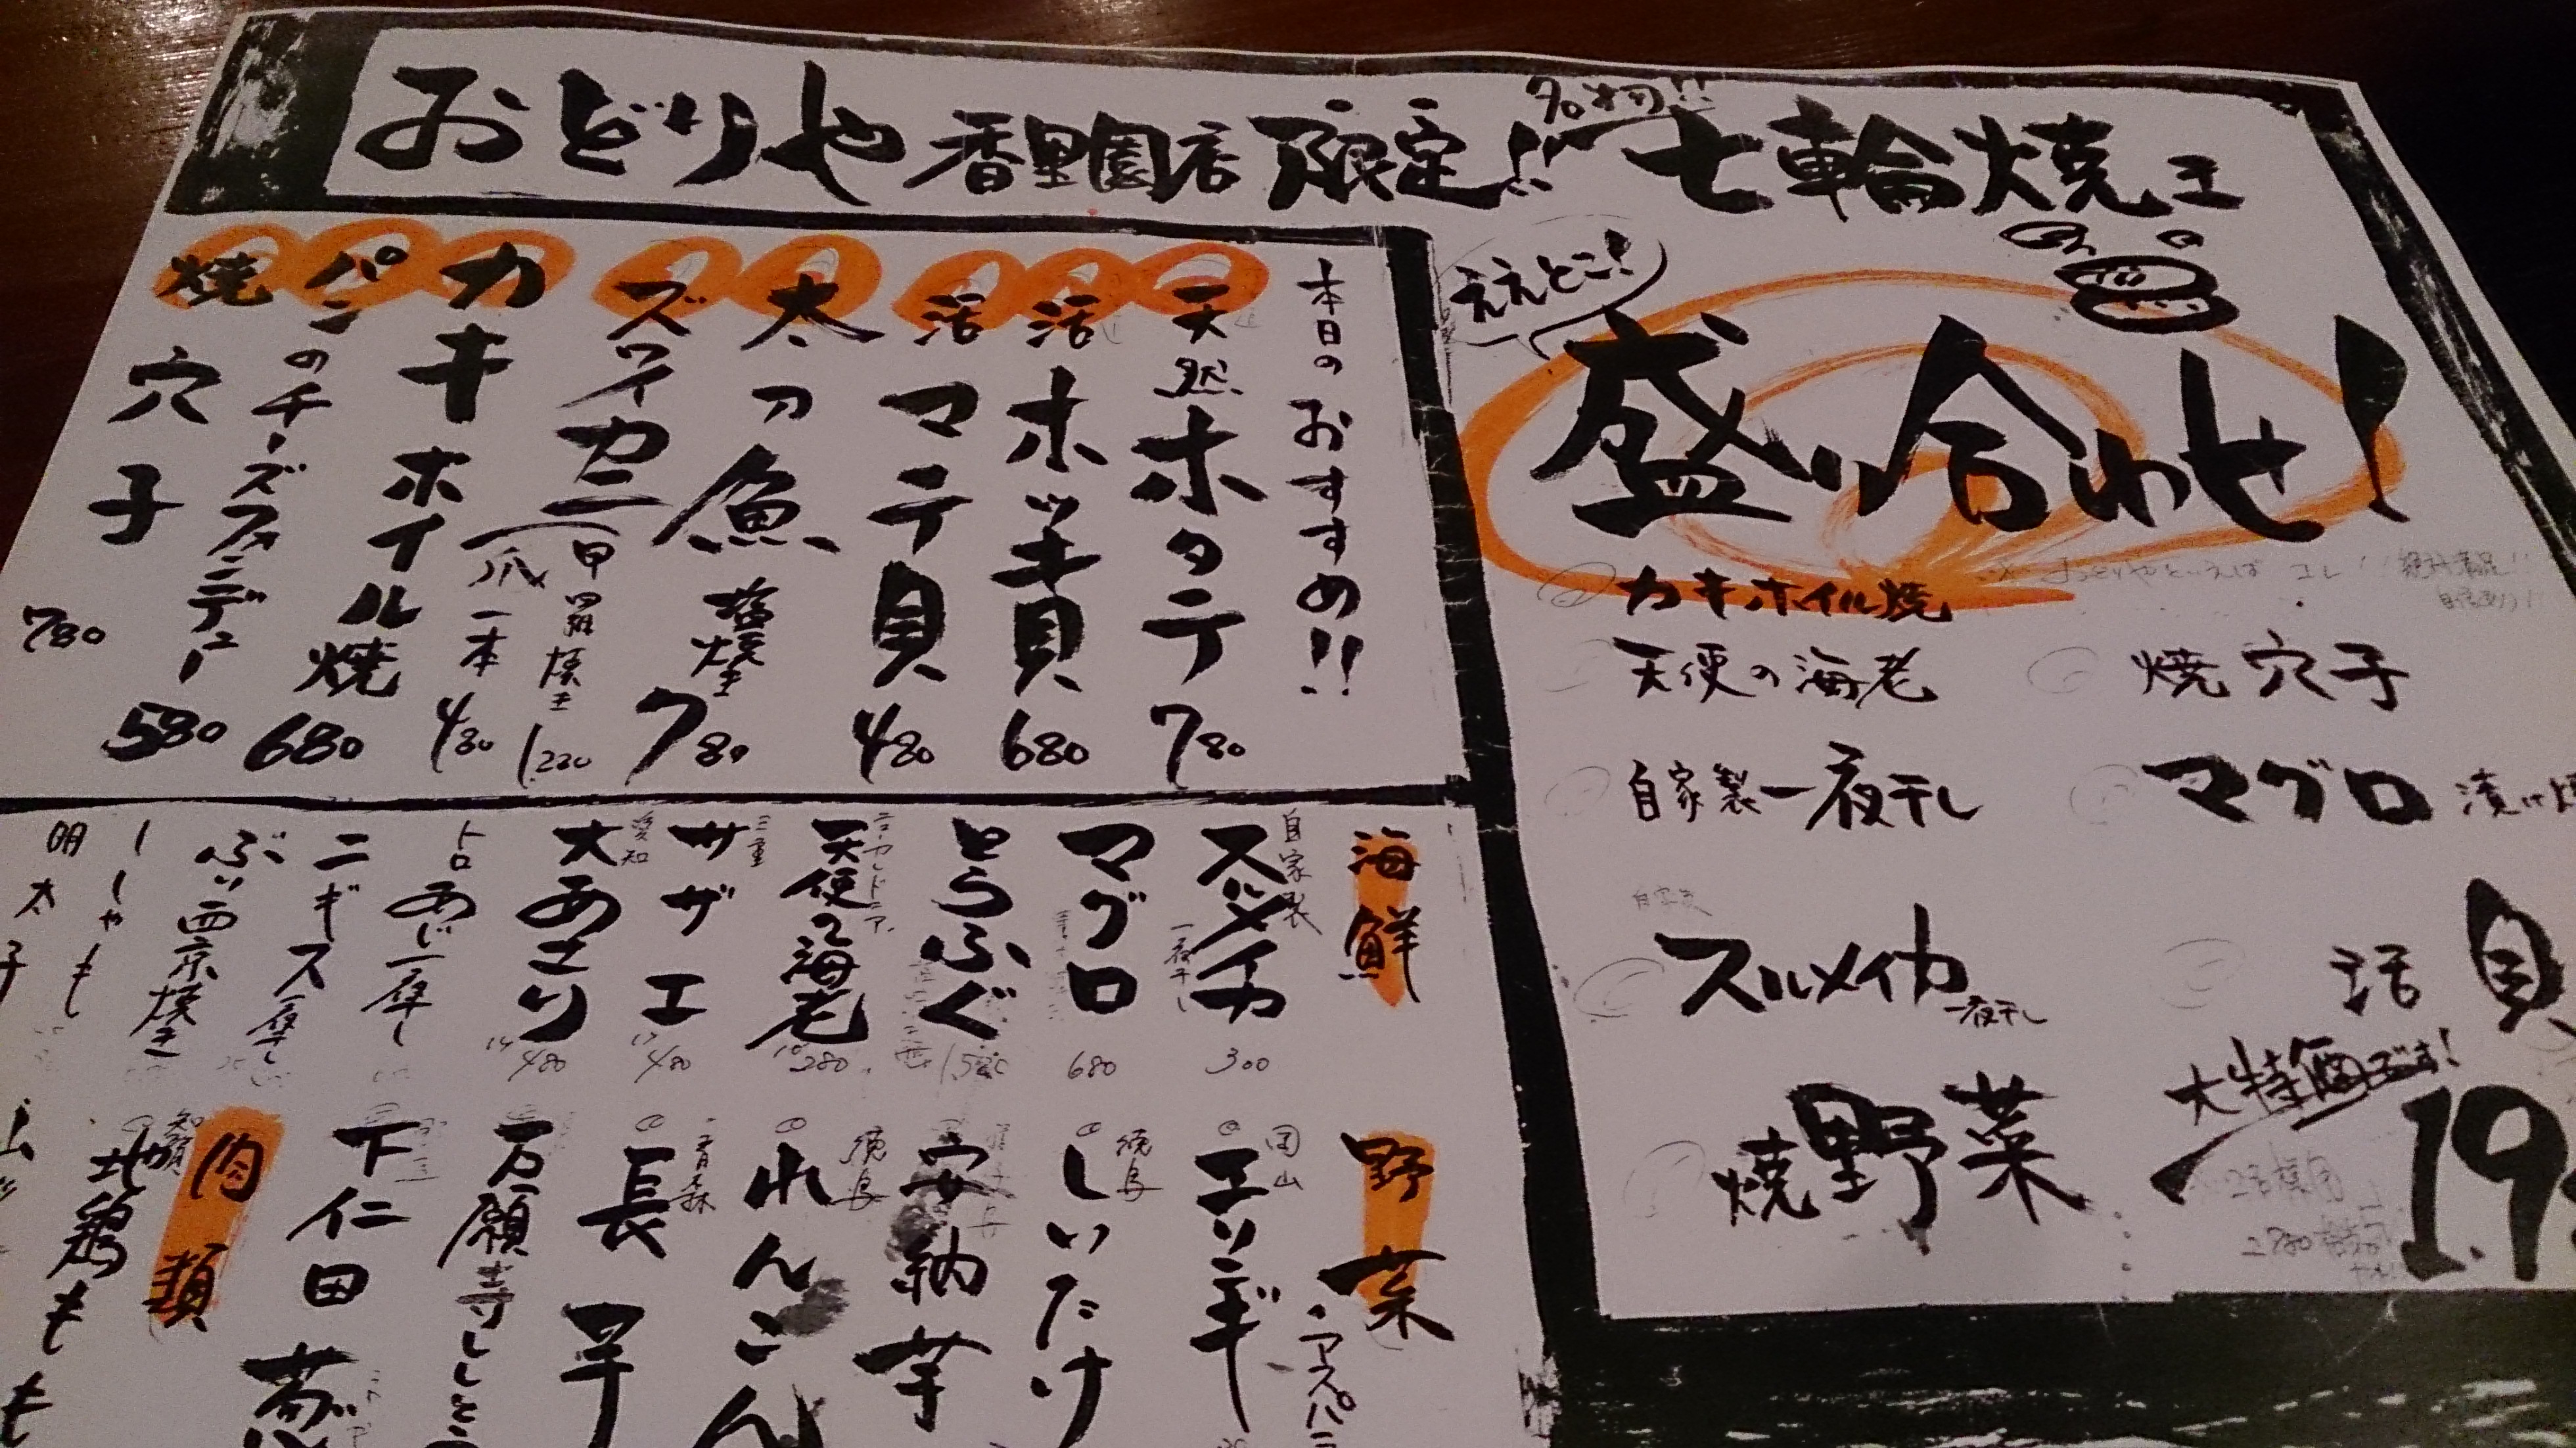 おどりや香里園店 限定!! 名物!! 七輪焼き
ええとこ!
盛り合わせ!
カキホイル焼
天使の海老
焼穴子
自家製一夜干し
マグロ
スルメイカ一夜干し
活貝
焼野菜
大特価です!
本日のおすすめ!!
天然ホタテ 780
活ホッキ貝 680
活マテ貝 480
太刀魚 塩焼き 780
ズワイカニ 甲羅焼き
爪一本 480
カキホイル焼 680
パンのチーズフォンデュー 580
焼穴子 780
海鮮
自家製 スルメイカ 一夜干し 300
マグロ 680
とらふぐ
ニューカレドニア 天使の海老 280
三重 サザエ 480
愛知 大あさり 480
トロあじ一夜干し
ニギス一夜干し
ぶり西京焼き
ししゃも
明太子
野菜
岡山 エリンギ
徳島 しいたけ
安納芋
徳島 れんこん
青森 長芋
万願寺ししとう
下仁田
肉類
地鶏もも